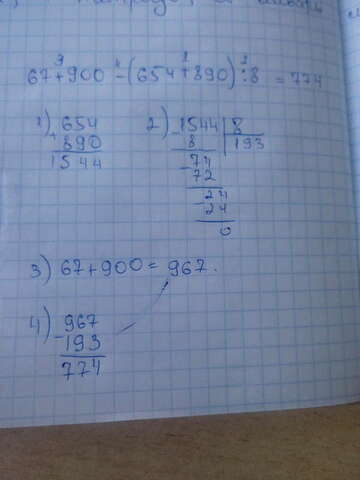 3 4 1 2
67+900-(654+890):8=774
1) +654
890
1544
2) -1544|8
8 193
-74
72
-24
24
0
3) 67+900=967.
4) -967
193
774